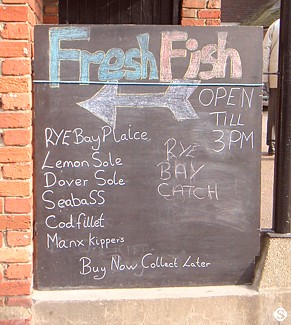 Fresh Fish
OPEN
TILL
3PM
RYE Bay Plaice
Lemon Sole
Dover Sole
Seabass
Cod fillet
Manx Kippers
RYE
BAY
CATCH
Buy Now Collect Later